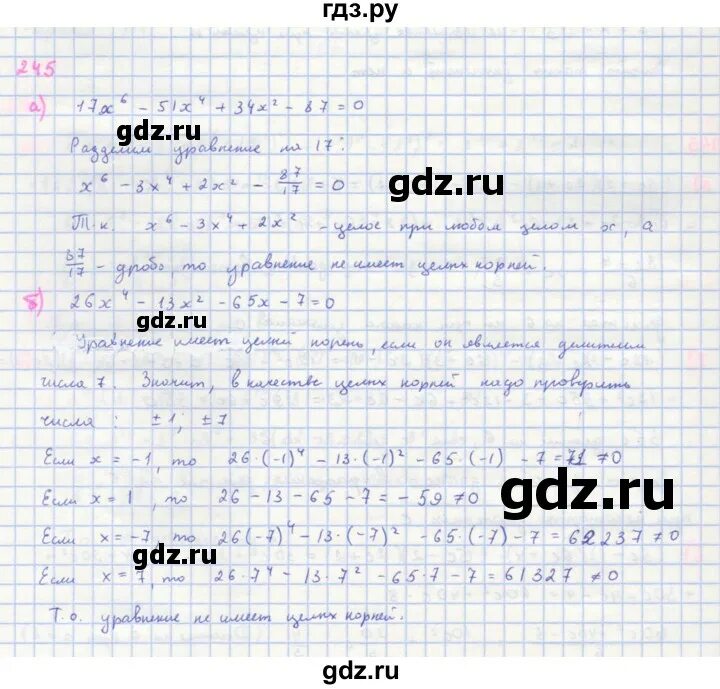 гдз.ру
245
а) 17x⁶ - 51x⁴ + 34x² - 87 = 0
gdz.ru
Разделим уравнение на 17:
x⁶ - 3x⁴ + 2x² - 87/17 = 0
gdz.ru
Т.к. x⁶ - 3x⁴ + 2x² - целое при любом целом x, а
87/17 - дробь, то уравнение не имеет целых корней.
б) 26x⁴ - 13x² - 65x - 7 = 0
gdz.ru
Уравнение имеет целый корень, если он является делителем
числа 7. Значит, в качестве целых корней надо проверить
числа: ±1; ±7
Если x = -1, то 26·(-1)⁴ - 13·(-1)² - 65·(-1) - 7 = 71 ≠ 0
Если x = 1, то 26 - 13 - 65 - 7 = -59 ≠ 0
gdz.ru
Если x = -7, то 26(-7)⁴ - 13·(-7)² - 65·(-7) - 7 = 62237 ≠ 0
gdz.ru
Если x = 7, то 26·7⁴ - 13·7² - 65·7 - 7 = 61327 ≠ 0
Т.о. уравнение не имеет целых корней.
gdz.ru
gdz.ru